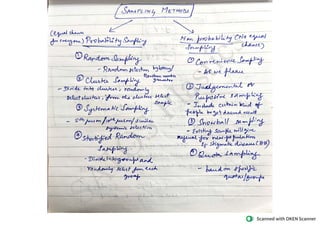 SAMPLING METHODS
(equal chance for everyone) Probability Sampling
① Random Sampling
- Random selection by
Random number generator
② Cluster Sampling
- Divide into clusters, randomly
select cluster, from the cluster select
sample
③ Systematic Sampling
- 5th person / 10th person / similar
systemic selection
④ Stratified Random
Sampling
- Divide into group and
randomly select from each
group
Non probability (No equal
Sampling chance)
① Convenience Sampling
- As we please
② Judgemental or
Purposive Sampling
- Include certain kind of
people to get desired result
③ Snowball Sampling
- Existing sample will give
referral for new population
Eg Stigmatic disease
④ Quota Sampling
- based on specific
quotas/groups
Scanned with OKEN Scanner